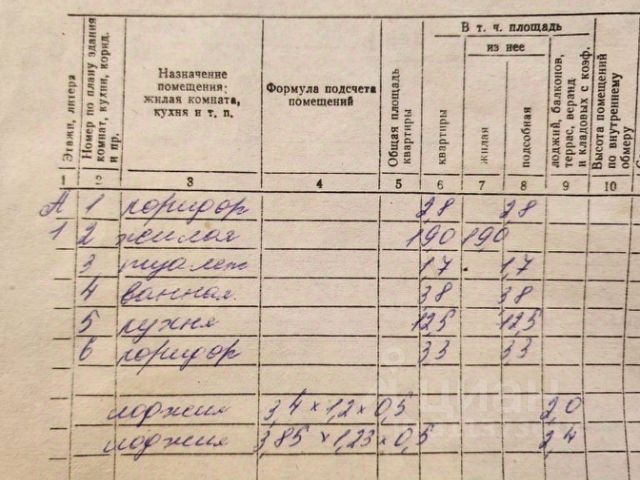 Этажи, литера
Номер по плану здания комнат, кухни, корид. и пр.
Назначение
помещения:
жилая комната,
кухня и т. п.
Формула подсчета
помещений
Общая площадь
квартиры
В т. ч. площадь
квартиры
из нее
жилая
подсобная
лоджий, балконов,
террас, веранд
и кладовых с коэф.
Высота помещений
по внутреннему
обмеру
1 2 3 4 5 6 7 8 9 10
А 1 коридор 2,8 2,8
1 2 жилая 19,0 19,0
3 туалет 1,7 1,7
4 ванная 3,8 3,8
5 кухня 12,5 12,5
6 коридор 3,3 3,3
лоджия 3,4 × 1,2 × 0,5 2,0
лоджия 3,85 × 1,23 × 0,5 2,4
циан